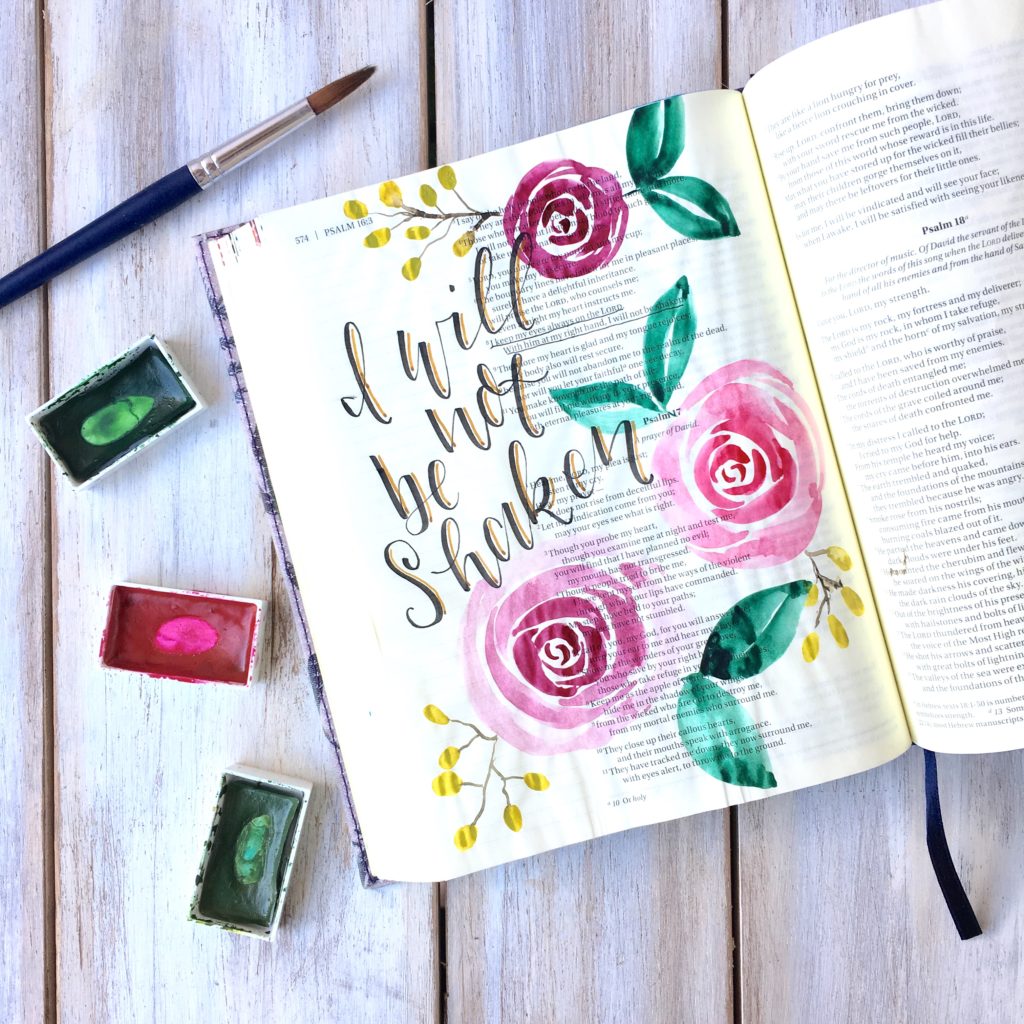 574 | PSALM 16:3
I will
not
be
shaken
I say
They are the
Those who
take up
you
The boundary lines
in pleasant places;
have a delightful inheritance.
the LORD, who counsels me;
night my heart instructs me.
I keep my eyes always on the LORD.
With him at my right hand, I will not be shaken.
my heart is glad and my tongue rejoices;
body also will rest secure,
you will not abandon me to the realm of the dead,
will you let your faithful one see decay.
You make known
you will fill me with
eternal pleasures at your
Psalm 17
A prayer of David.
my plea is just;
to my cry.
does not rise from deceitful lips.
Let my vindication come from you;
may your eyes see what is right.
Though you probe my heart,
though you examine me at night and test me,
you will find that I have planned no evil;
my mouth has not transgressed.
Though people tried to bribe me,
I have kept myself from the ways of the violent
through what your lips have commanded.
My steps have held to your paths;
my feet have not stumbled.
I call on you, my God, for you will answer me;
turn your ear to me and hear my
me the wonders of your great love,
you who save by your right hand
those who take refuge in you
Keep me as the apple of your eye;
hide me in the shadow of your wings
from the wicked who are out to destroy me,
from my mortal enemies who surround me.
They close up their callous hearts,
and their mouths speak with arrogance.
They have tracked me down, they now surround me,
with eyes alert, to throw me to the ground.
10 Or holy
are like a lion hungry for prey,
like a fierce lion crouching in cover.
up, LORD, confront them, bring them down;
with your sword rescue me from the wicked.
hand save me from such people, LORD,
from those of this world whose reward is in this life.
what you have stored up for the wicked fill their bellies;
may their children gorge themselves on it,
and may there be leftovers for their little ones.
me, I will be vindicated and will see your face;
when I awake, I will be satisfied with seeing your likeness
Psalm 18
For the director of music. Of David the servant of the
the LORD the words of this song when the LORD
hand of all his enemies and from the hand of
I love you, LORD, my strength.
The LORD is my rock, my fortress and my deliverer;
my God is my rock, in whom I take refuge,
my shield and the horn of my salvation, my
I called to the LORD, who is worthy of praise,
and I have been saved from my enemies.
The cords of death entangled me;
the torrents of destruction overwhelmed me
The cords of the grave coiled around me;
the snares of death confronted me.
In my distress I called to the LORD;
I cried to my God for help.
From his temple he heard my voice;
my cry came before him, into his ears.
The earth trembled and quaked,
and the foundations of the mountains
they trembled because he was angry.
Smoke rose from his nostrils;
consuming fire came from his mouth
burning coals blazed out of it.
He parted the heavens and came down
dark clouds were under his feet.
He mounted the cherubim and flew
he soared on the wings of the wind
He made darkness his covering, his
the dark rain clouds of the sky.
Out of the brightness of his presence
with hailstones and bolts of
The LORD thundered from heaven
the voice of the Most High
He shot his arrows and scattered
with great bolts of lightning
The valleys of the sea were
and the foundations of the